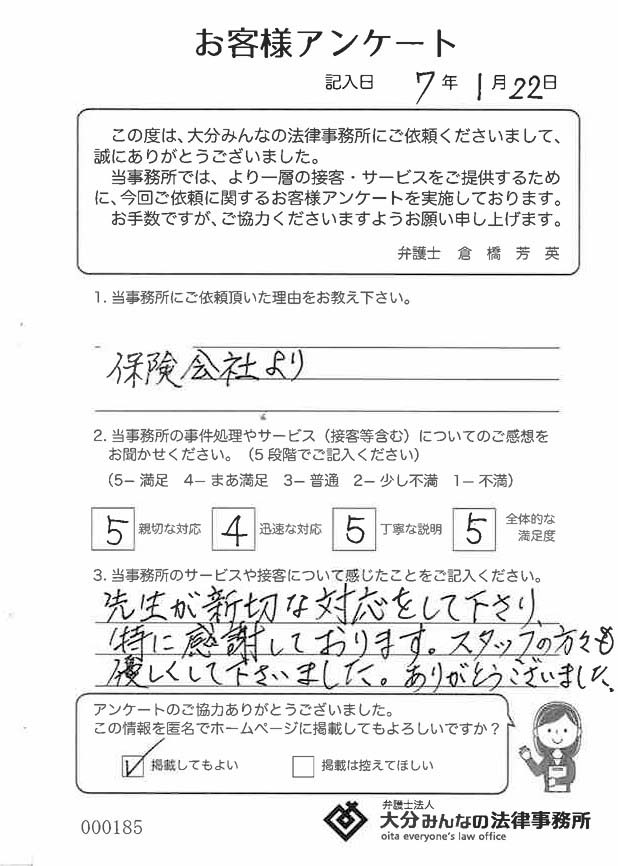 お客様アンケート
記入日 7年 1月22日
この度は、大分みんなの法律事務所にご依頼くださいまして、
誠にありがとうございました。
当事務所では、より一層の接客・サービスをご提供するため
に、今回ご依頼に関するお客様アンケートを実施しております。
お手数ですが、ご協力くださいますようお願い申し上げます。
弁護士 倉橋芳英
1. 当事務所にご依頼頂いた理由をお教え下さい。
保険会社より
2. 当事務所の事件処理やサービス（接客等含む）についてのご感想を
お聞かせください。（5段階でご記入ください）
（5− 満足 4− まあ満足 3− 普通 2− 少し不満 1− 不満）
5 親切な対応 4 迅速な対応 5 丁寧な説明 5 全体的な
満足度
3. 当事務所のサービスや接客について感じたことをご記入ください。
先生が新切な対応をして下さり、
特に感謝しております。スタッフの方々も
優しくして下さいました。ありがとうございました。
アンケートのご協力ありがとうございました。
この情報を匿名でホームページに掲載してもよろしいですか？
掲載してもよい 掲載は控えてほしい
000185
弁護士法人
大分みんなの法律事務所
oita everyone's law office